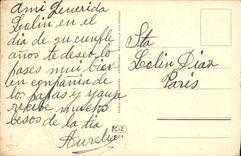 Ami querida
Lolin en el
dia de su cumple
años te deseo lo
pases mui bien
en compañia de
los papas y
recibe muchos
besos de la tia
Aurelia
Sta
Lolin Diaz
Paris